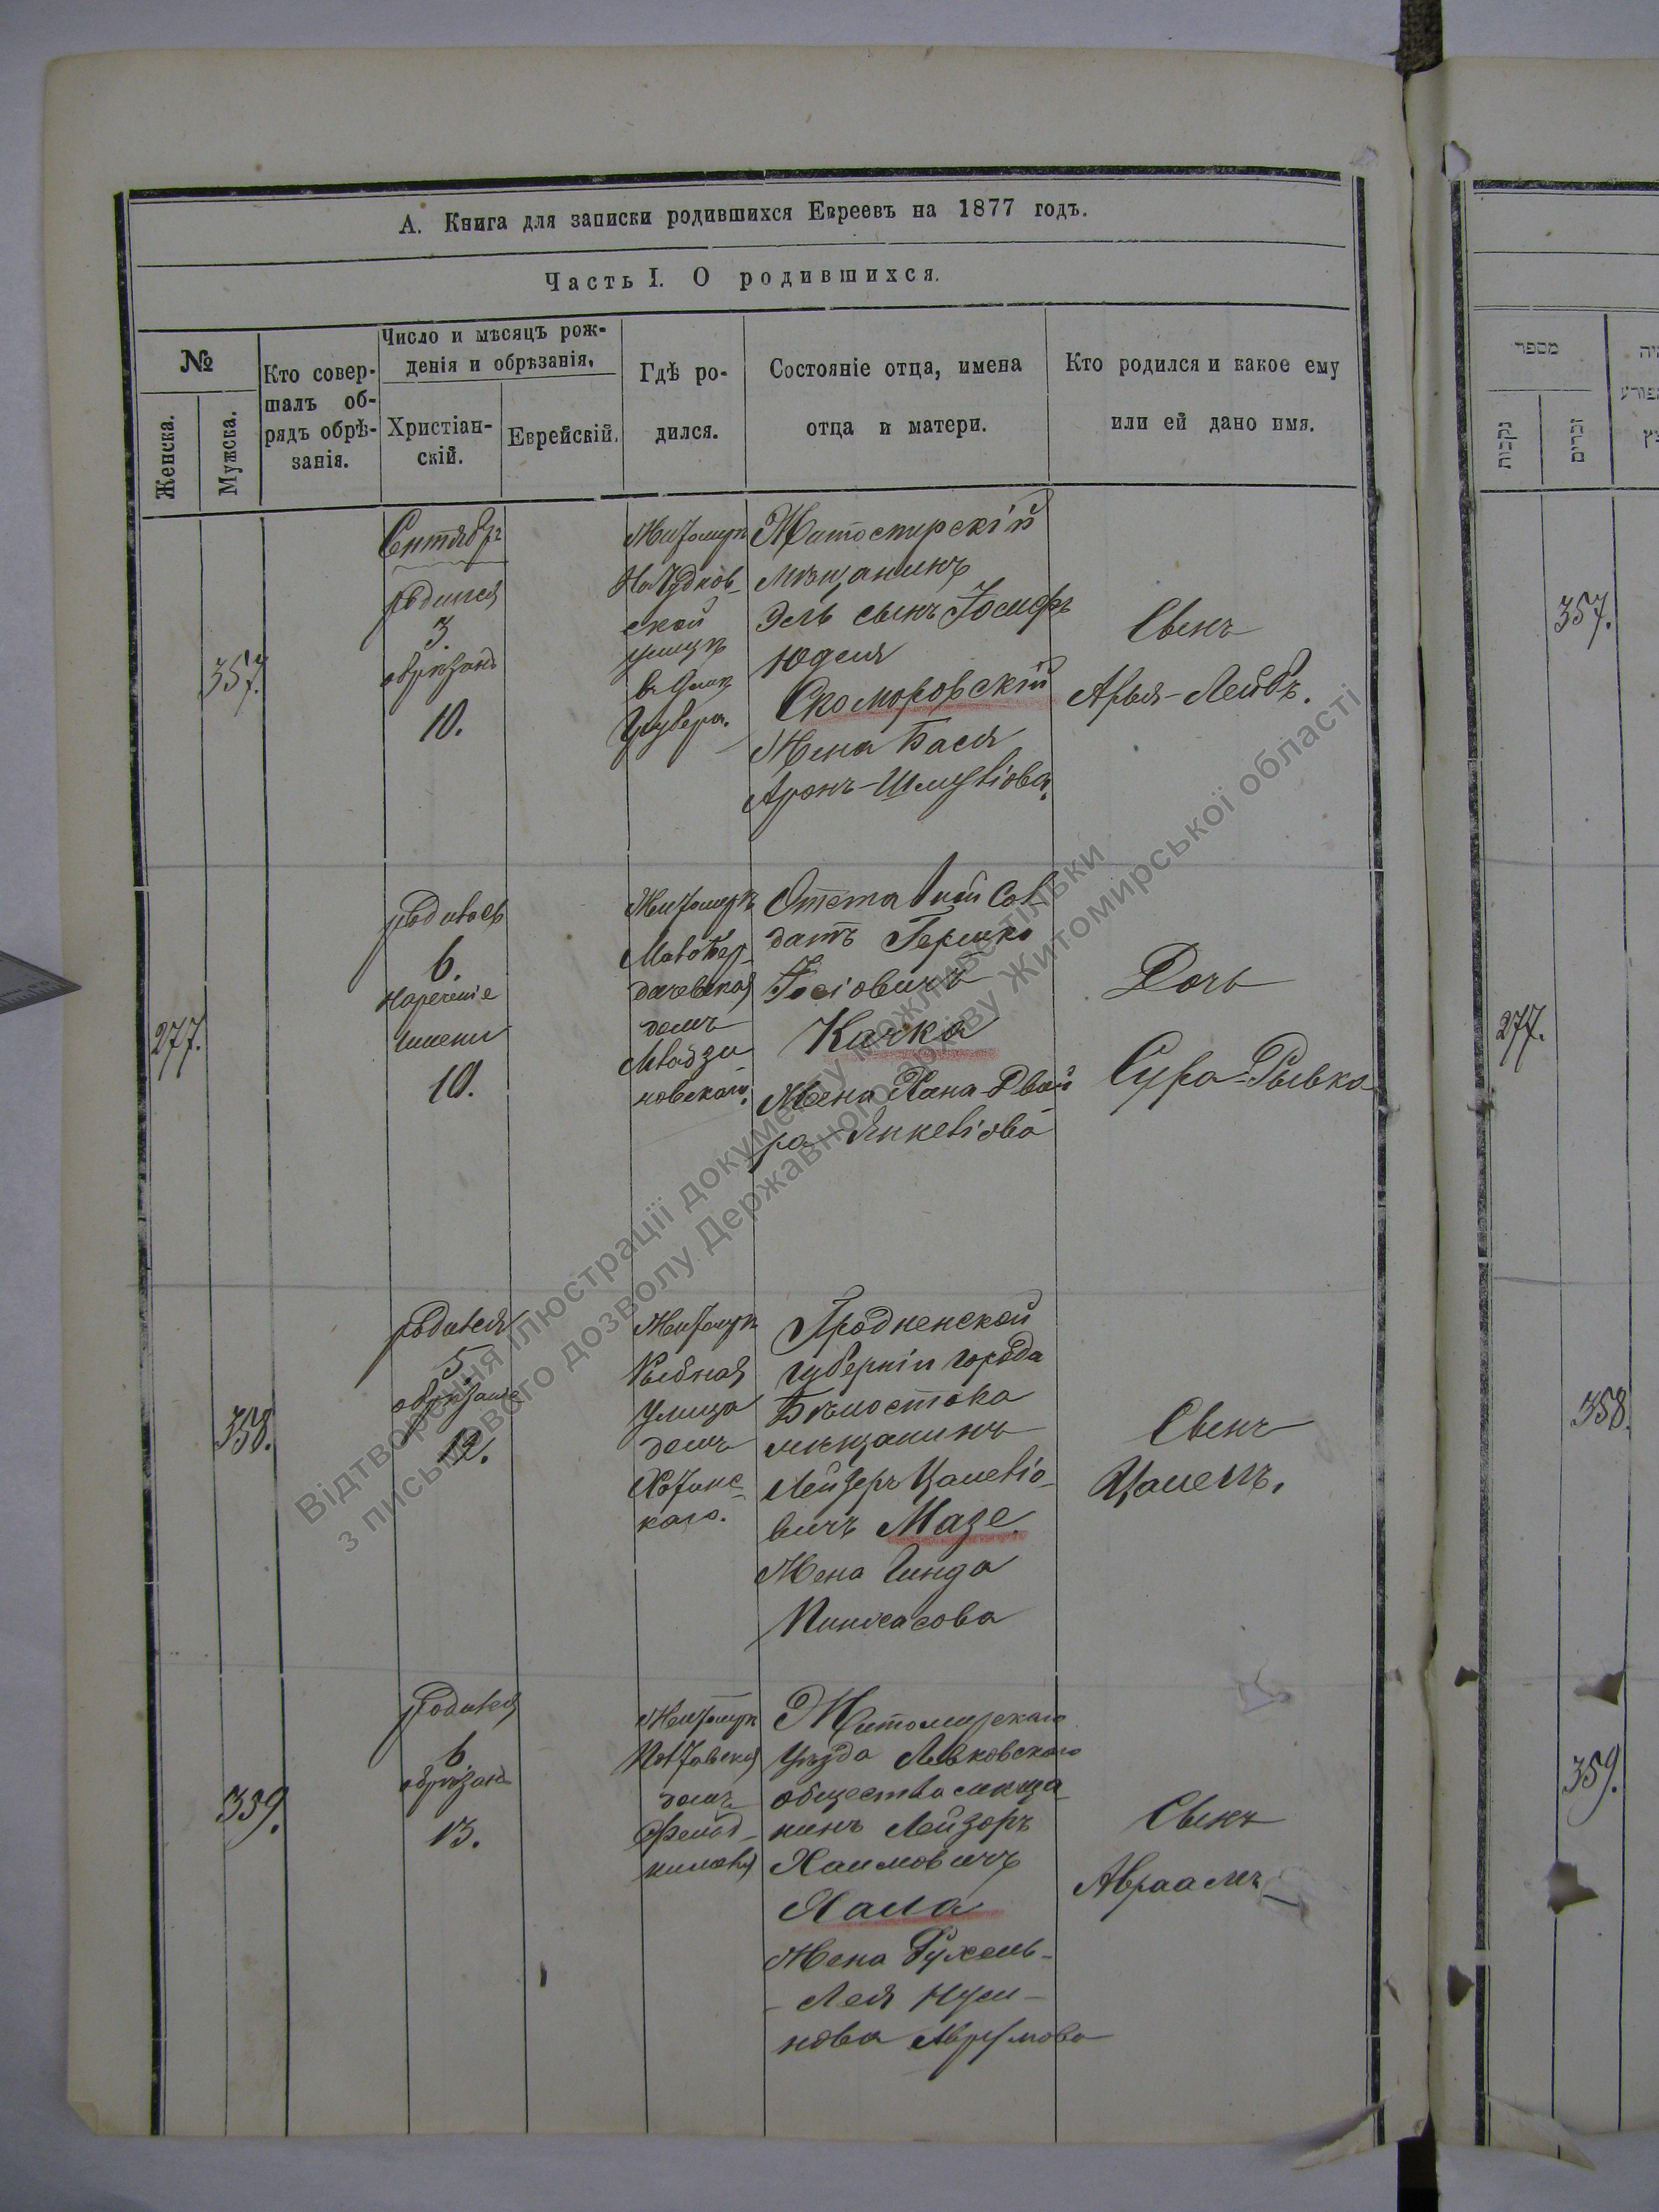 А. Книга для записки родившихся Евреевъ на 1877 годъ.
Часть I. О родившихся.
№
Женска.
Мужска.
Кто совер-
шалъ об-
рядъ обрѣ-
занія.
Число и мѣсяцъ рож-
денія и обрѣзанія.
Христіан-
скій.
Еврейскій.
Гдѣ ро-
дился.
Состояніе отца, имена
отца и матери.
Кто родился и какое ему
или ей дано имя.
357.
Сентябрь
родился
3.
обрѣзанъ
10.
Житомирѣ
ской
улицѣ
Житомирскій
мѣщанинъ
Эль сынъ Іосифъ
Юделя
Скоморовскій
Жена Бася
Аронъ-Шмулiова.
Сынъ
Арья-Лейбъ.
277.
родилась
6.
нареченіе
имени
10.
Житомирѣ
Малобер-
дичевская
домъ
Отставной Сол-
датъ Гершко
Іосіовичъ
Качка
Жена Хана-Двой
ра Янкеліова
Дочь
Сура-Рывка
358.
родился
5
обрѣзаніе
12.
Житомирѣ
Рыбная
улица
домъ
каго.
Гродненской
губерніи города
Бѣлостока
мѣщанинъ
Лейзеръ Цалеліо-
вичъ Мазе.
Жена Гинда
Пинхасова
Сынъ
Цалель.
359.
родился
6
обрѣзанъ
13.
Житомирѣ
домъ
Житомирскаго
уѣзда Левковскаго
общества мѣща
нинъ Лейзоръ
Хаимовичъ
Жена Рухель-
-Лея Нуси-
нова Аврумова
Сынъ
Авраамъ
מספר
נקבות
זכרים
357.
277.
358.
359.
Відтворення ілюстрації документу можливе тільки
з письмового дозволу Державного архіву Житомирської області